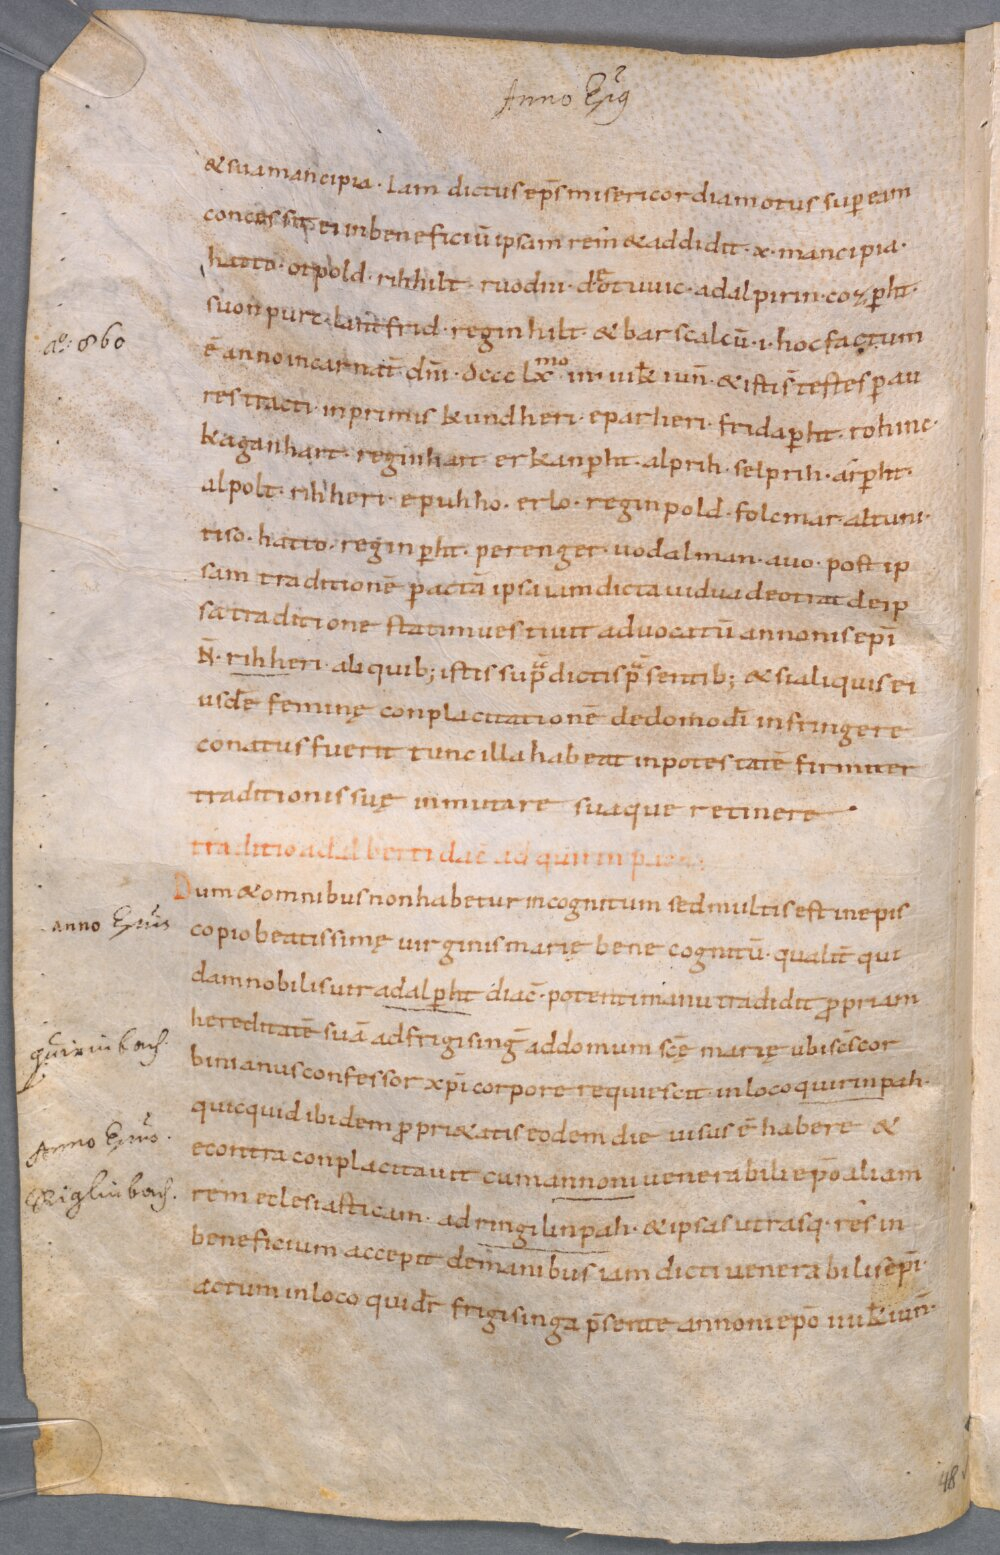 Anno Epūs
& sua mancipia · Iam dictus ep̄s misericordia motus sup eam
concessit ei in beneficiū ipsam rem & addidit · x · mancipia ·
hatto · otpold · rihhilt · ruodni · deotuuic · adalpirin · cozp̄ht ·
suonpurc · lantfrid · reginhilt · & barscalcū · i · hoc factum
aō: 860
ē anno incarnat̄ dn̄i · dccclxmo · in uik̄ iun̄ · & istis testes p au
res tracti · inprimis kundheri · eparheri · fridap̄ht · rohinc ·
kaganhart · reginhart · erkanp̄ht · alprih · selprih · arp̄ht ·
alpolt · rihheri · epuhho · erlo · reginpold · folcmar · altuni ·
tiso · hatto · reginp̄ht · perenger · uodalman · auo · post ip
sam traditionē pactā ipsa iam dicta uidua deotrat de ip
sa traditione statim uestiuit aduocatū annonis epī
N̄ · rihheri · aliquib; istis supdictis psentib; & si aliquis ei
usdē feminę conplacitationē de domo dī infringere
conatus fuerit tunc illa habeat in potestatē firmiter
traditionis suę inmutare suaque retinere ·
traditio adalberti dac̄ ad quirinpach
Dum & omnibus non habetur incognitum sed multis est in epis
anno Epūs
copio beatissimę uirginis marię bene cognitū · qualit̄ qui
dam nobilis uir adalp̄ht diac̄ · potenti manu tradidit ppriam
hereditatē suā ad frigisinḡ ad domum scē marię ubi sc̄s cor
quirinbach.
binianus confessor xp̄i corpore requiescit in loco quirinpah ·
quicquid ibidem pprietatis eodem die uisus ē habere &
Anno Epūs.
econtra conplacitauit cum annoni uenerabili epō aliam
Riglinbach.
rem eclesiasticam · ad ringilinpah · & ipsas utrasq · res in
beneficium accepit de manibus iam dicti uenerabilis epī ·
actum in loco quidr̄ frigisinga p̄sente annoni epō iiiik̄ iun̄ ·
48